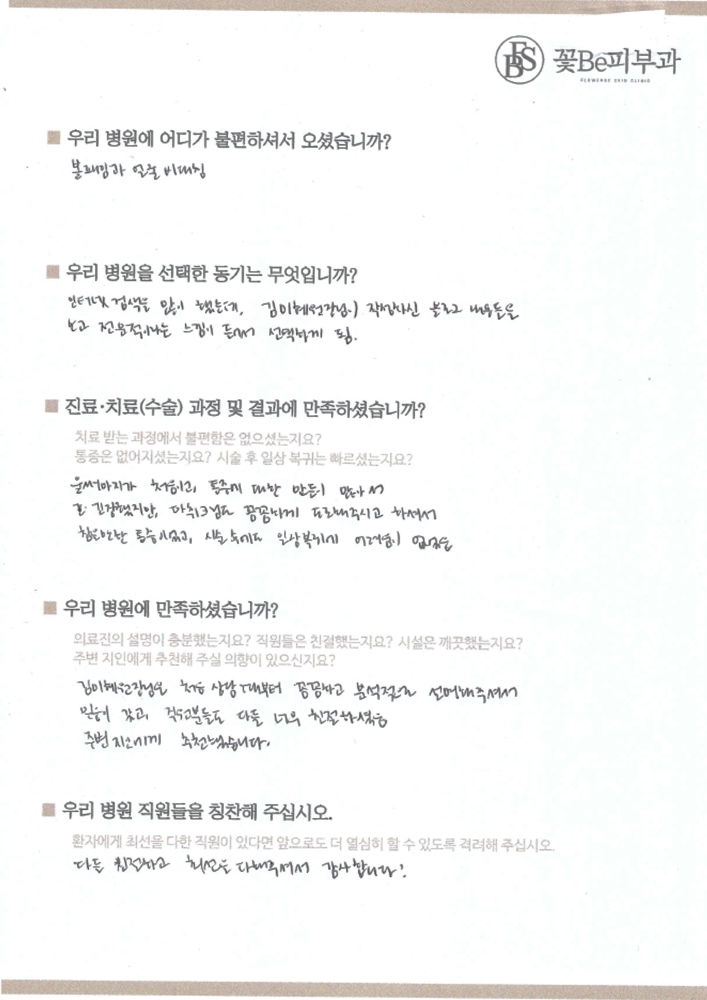 FBS 꽃Be피부과
FLOWERBE SKIN CLINIC
우리 병원에 어디가 불편하셔서 오셨습니까?
볼패임과 얼굴 비대칭
우리 병원을 선택한 동기는 무엇입니까?
인터넷 검색을 많이 했는데, 김이혜원장님이 작성하신 블로그 내용들을
보고 전문적이라는 느낌이 들어서 선택하게 됨.
진료·치료(수술) 과정 및 결과에 만족하셨습니까?
치료 받는 과정에서 불편함은 없으셨는지요?
통증은 없어지셨는지요? 시술 후 일상 복귀는 빠르셨는지요?
울써마지가 처음이고, 통증에 대한 만
긴장했지만, 마취크림도 꼼꼼하게 도포해주시고 하셔서
참을만한 통증이었고, 시술 후에도 일상복귀에 어려움이 없었음
우리 병원에 만족하셨습니까?
의료진의 설명이 충분했는지요? 직원들은 친절했는지요? 시설은 깨끗했는지요?
주변 지인에게 추천해 주실 의향이 있으신지요?
김이혜원장님은 처음 상담 때부터 꼼꼼하고 분석적으로 설명해주셔서
믿음이 갔고, 직원분들도 다들 너무 친절하셨음
주변 지인에게 추천했습니다.
우리 병원 직원들을 칭찬해 주십시오.
환자에게 최선을 다한 직원이 있다면 앞으로도 더 열심히 할 수 있도록 격려해 주십시오.
다들 친절하고 최선을 다해주셔서 감사합니다!